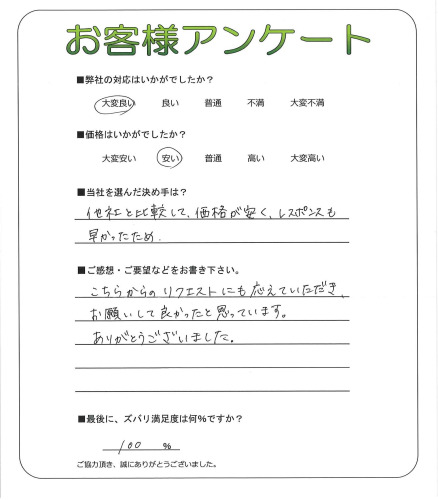 お客様アンケート
■弊社の対応はいかがでしたか？
大変良い 良い 普通 不満 大変不満
■価格はいかがでしたか？
大変安い 安い 普通 高い 大変高い
■当社を選んだ決め手は？
他社と比較して、価格が安く、レスポンスも
早かったため.
■ご感想・ご要望などをお書き下さい。
こちらからのリクエストにも応えていただき、
お願いして良かったと思っています。
ありがとうございました。
■最後に、ズバリ満足度は何%ですか？
100 %
ご協力頂き、誠にありがとうございました。